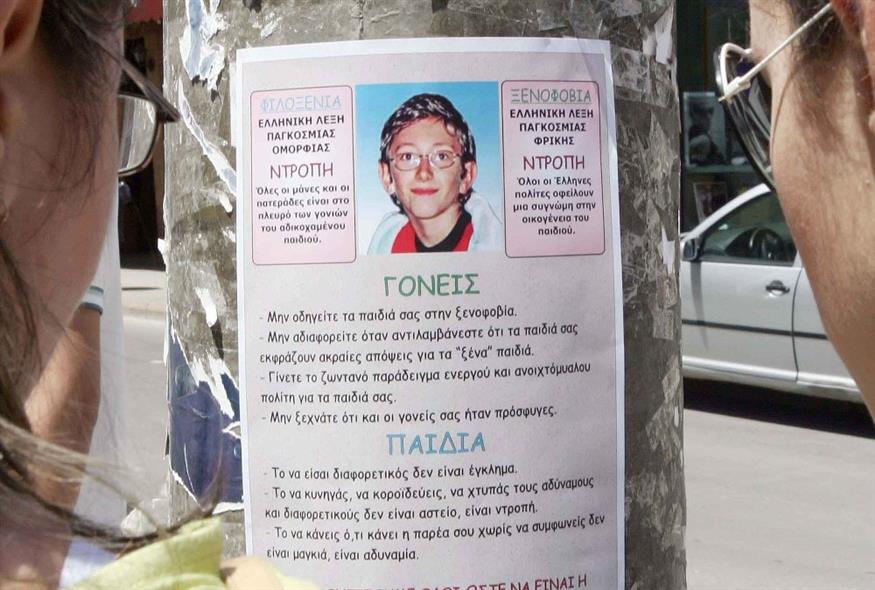 ΦΙΛΟΞΕΝΙΑ
ΕΛΛΗΝΙΚΗ ΛΕΞΗ
ΠΑΓΚΟΣΜΙΑΣ
ΟΜΟΡΦΙΑΣ
ΝΤΡΟΠΗ
Όλες οι μάνες και οι
πατεράδες είναι στο
πλευρό των γονιών
του αδικοχαμένου
παιδιού.
ΞΕΝΟΦΟΒΙΑ
ΕΛΛΗΝΙΚΗ ΛΕΞΗ
ΠΑΓΚΟΣΜΙΑΣ
ΦΡΙΚΗΣ
ΝΤΡΟΠΗ
Όλοι οι Έλληνες
πολίτες οφείλουν
μια συγνώμη στην
οικογένεια του
παιδιού.
ΓΟΝΕΙΣ
- Μην οδηγείτε τα παιδιά σας στην ξενοφοβία.
- Μην αδιαφορείτε όταν αντιλαμβάνεστε ότι τα παιδιά σας
εκφράζουν ακραίες απόψεις για τα "ξένα" παιδιά.
- Γίνετε το ζωντανό παράδειγμα ενεργού και ανοιχτόμυαλου
πολίτη για τα παιδιά σας.
- Μην ξεχνάτε ότι και οι γονείς σας ήταν πρόσφυγες.
ΠΑΙΔΙΑ
- Το να είσαι διαφορετικός δεν είναι έγκλημα.
- Το να κυνηγάς, να κοροϊδεύεις, να χτυπάς τους αδύναμους
και διαφορετικούς δεν είναι αστείο, είναι ντροπή.
- Το να κάνεις ό,τι κάνει η παρέα σου χωρίς να συμφωνείς δεν
είναι μαγκιά, είναι αδυναμία.
ΩΣΤΕ ΝΑ ΕΙΝΑΙ Η